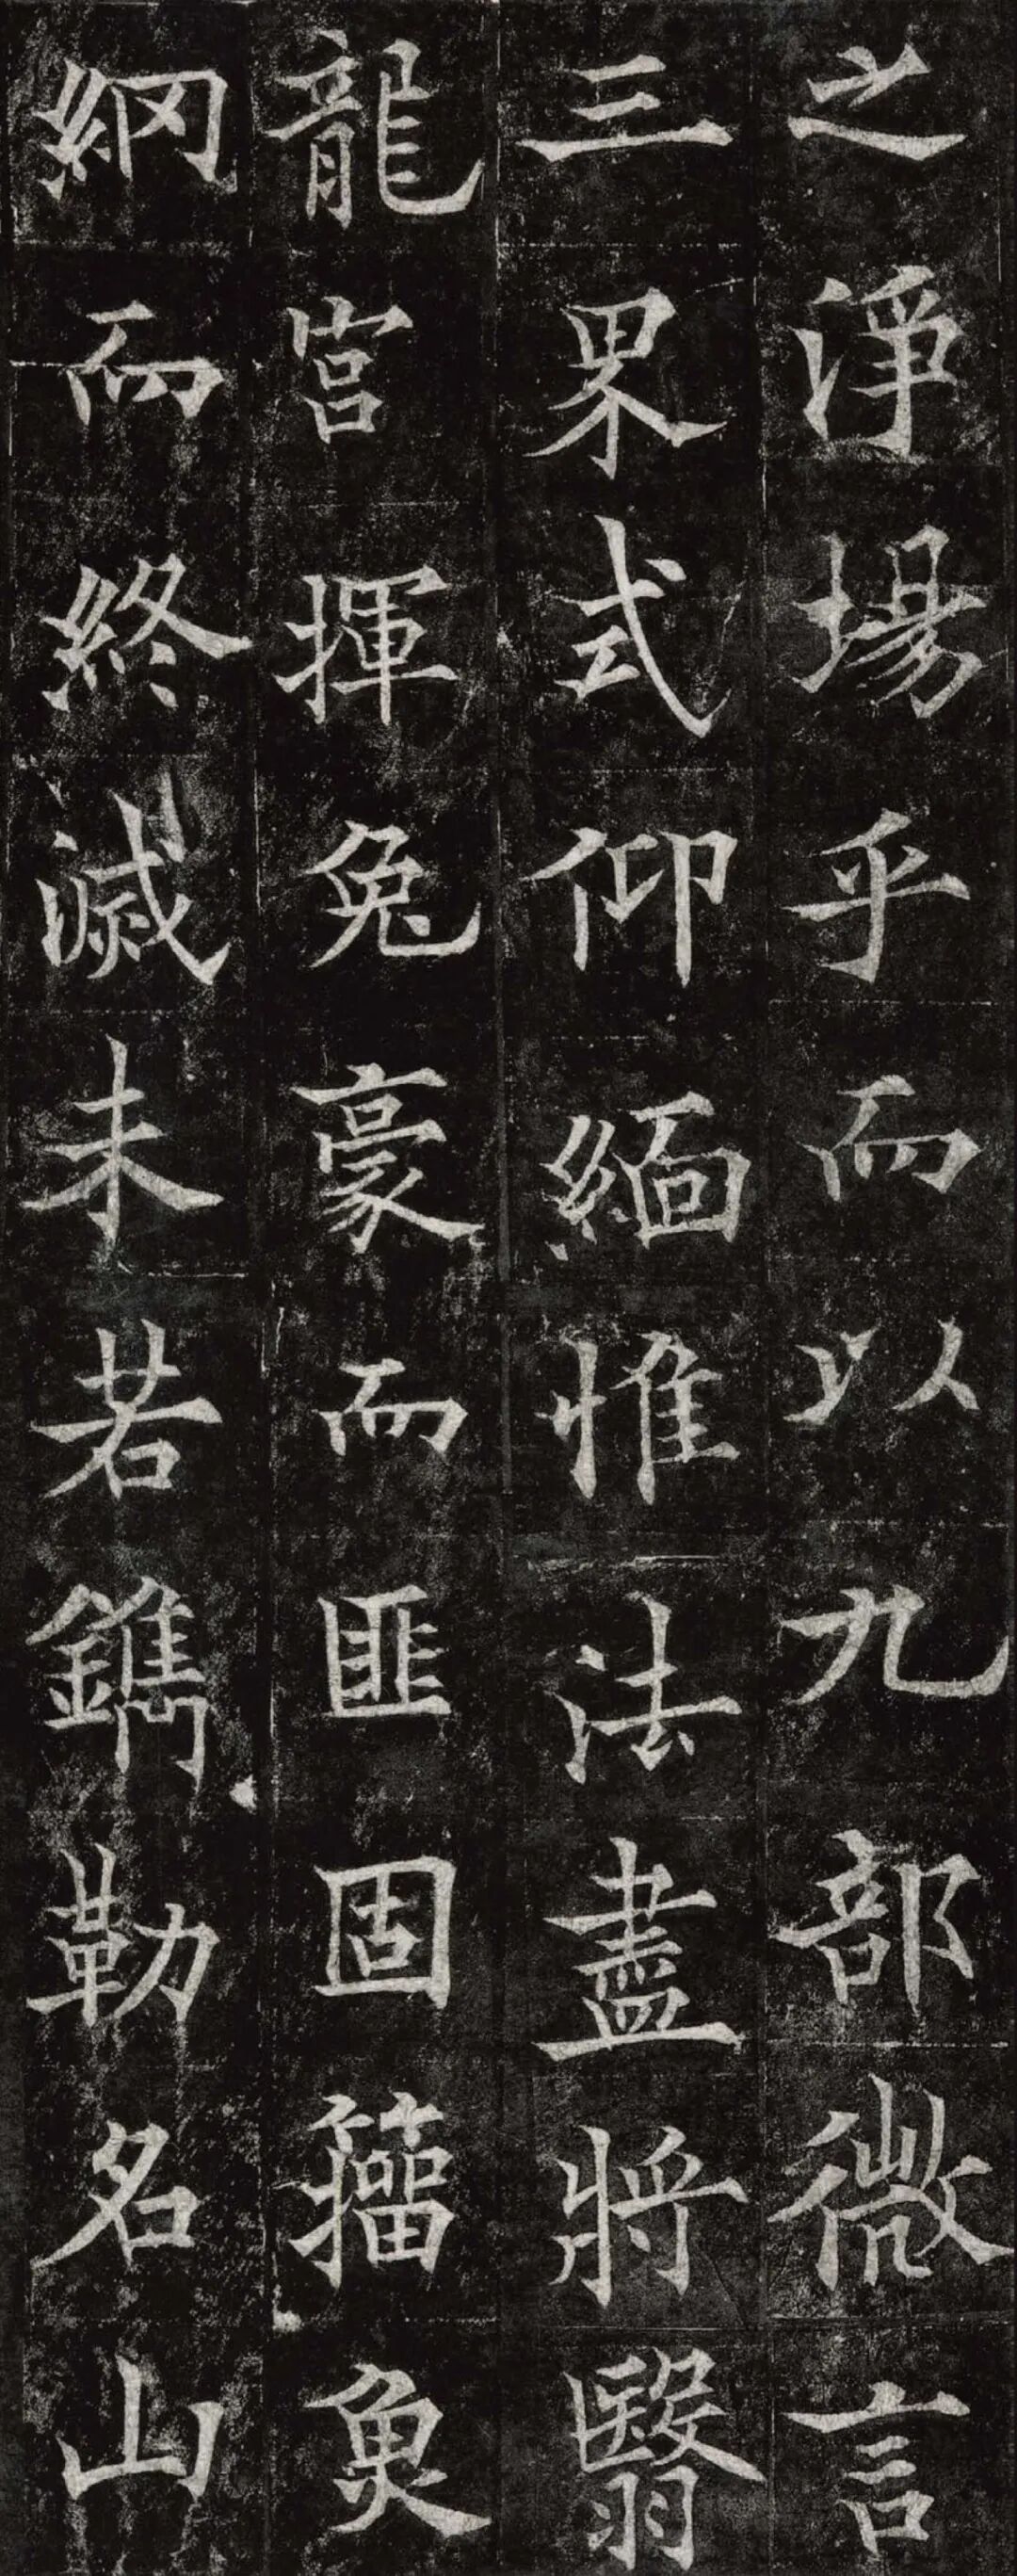 之淨場乎而以九部微言
三界式仰緬惟法盡將翳
龍宮揮兔豪而匪固籀魚
網而終滅未若鐫勒名山